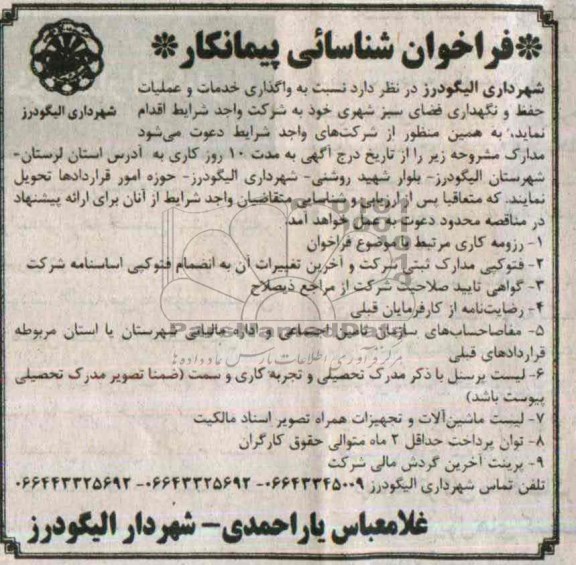 *فراخوان شناسائی پیمانکار*
شهرداری الیگودرز در نظر دارد نسبت به واگذاری خدمات و عملیات
حفظ و نگهداری فضای سبز شهری خود به شرکت واجد شرایط اقدام
شهرداری الیگودرز
نماید، به همین منظور از شرکت‌های واجد شرایط دعوت می‌شود
مدارک مشروحه زیر را از تاریخ درج آگهی به مدت ۱۰ روز کاری به آدرس استان لرستان-
شهرستان الیگودرز- بلوار شهید روشنی- شهرداری الیگودرز- حوزه امور قراردادها تحویل
نمایند. که متعاقبا پس از ارزیابی و شناسایی متقاضیان واجد شرایط از آنان برای ارائه پیشنهاد
در مناقصه محدود دعوت بعمل خواهد آمد.
۱- رزومه کاری مرتبط با موضوع فراخوان
۲- فتوکپی مدارک ثبتی شرکت و آخرین تغییرات آن به انضمام فتوکپی اساسنامه شرکت
۳- گواهی تایید صلاحیت شرکت از مراجع ذیصلاح
۴- رضایت‌نامه از کارفرمایان قبلی
۵- مفاصاحساب‌های سازمان تامین اجتماعی و اداره مالیاتی شهرستان یا استان مربوطه
ParsNamadData
قراردادهای قبلی
مرکز فرآوری اطلاعات پارس نماد داده‌ها
۶- لیست پرسنل با ذکر مدرک تحصیلی و تجربه کاری و سمت (ضمنا تصویر مدرک تحصیلی
پیوست باشد)
۷- لیست ماشین‌آلات و تجهیزات همراه تصویر اسناد مالکیت
۸- توان پرداخت حداقل ۲ ماه متوالی حقوق کارگران
۹- پرینت آخرین گردش مالی شرکت
تلفن تماس شهرداری الیگودرز ۰۶۶۴۳۳۴۵۰۰۹- ۰۶۶۴۳۳۲۵۶۹۲- ۰۶۶۴۴۳۳۲۵۶۹۲
غلامعباس یاراحمدی- شهردار الیگودرز